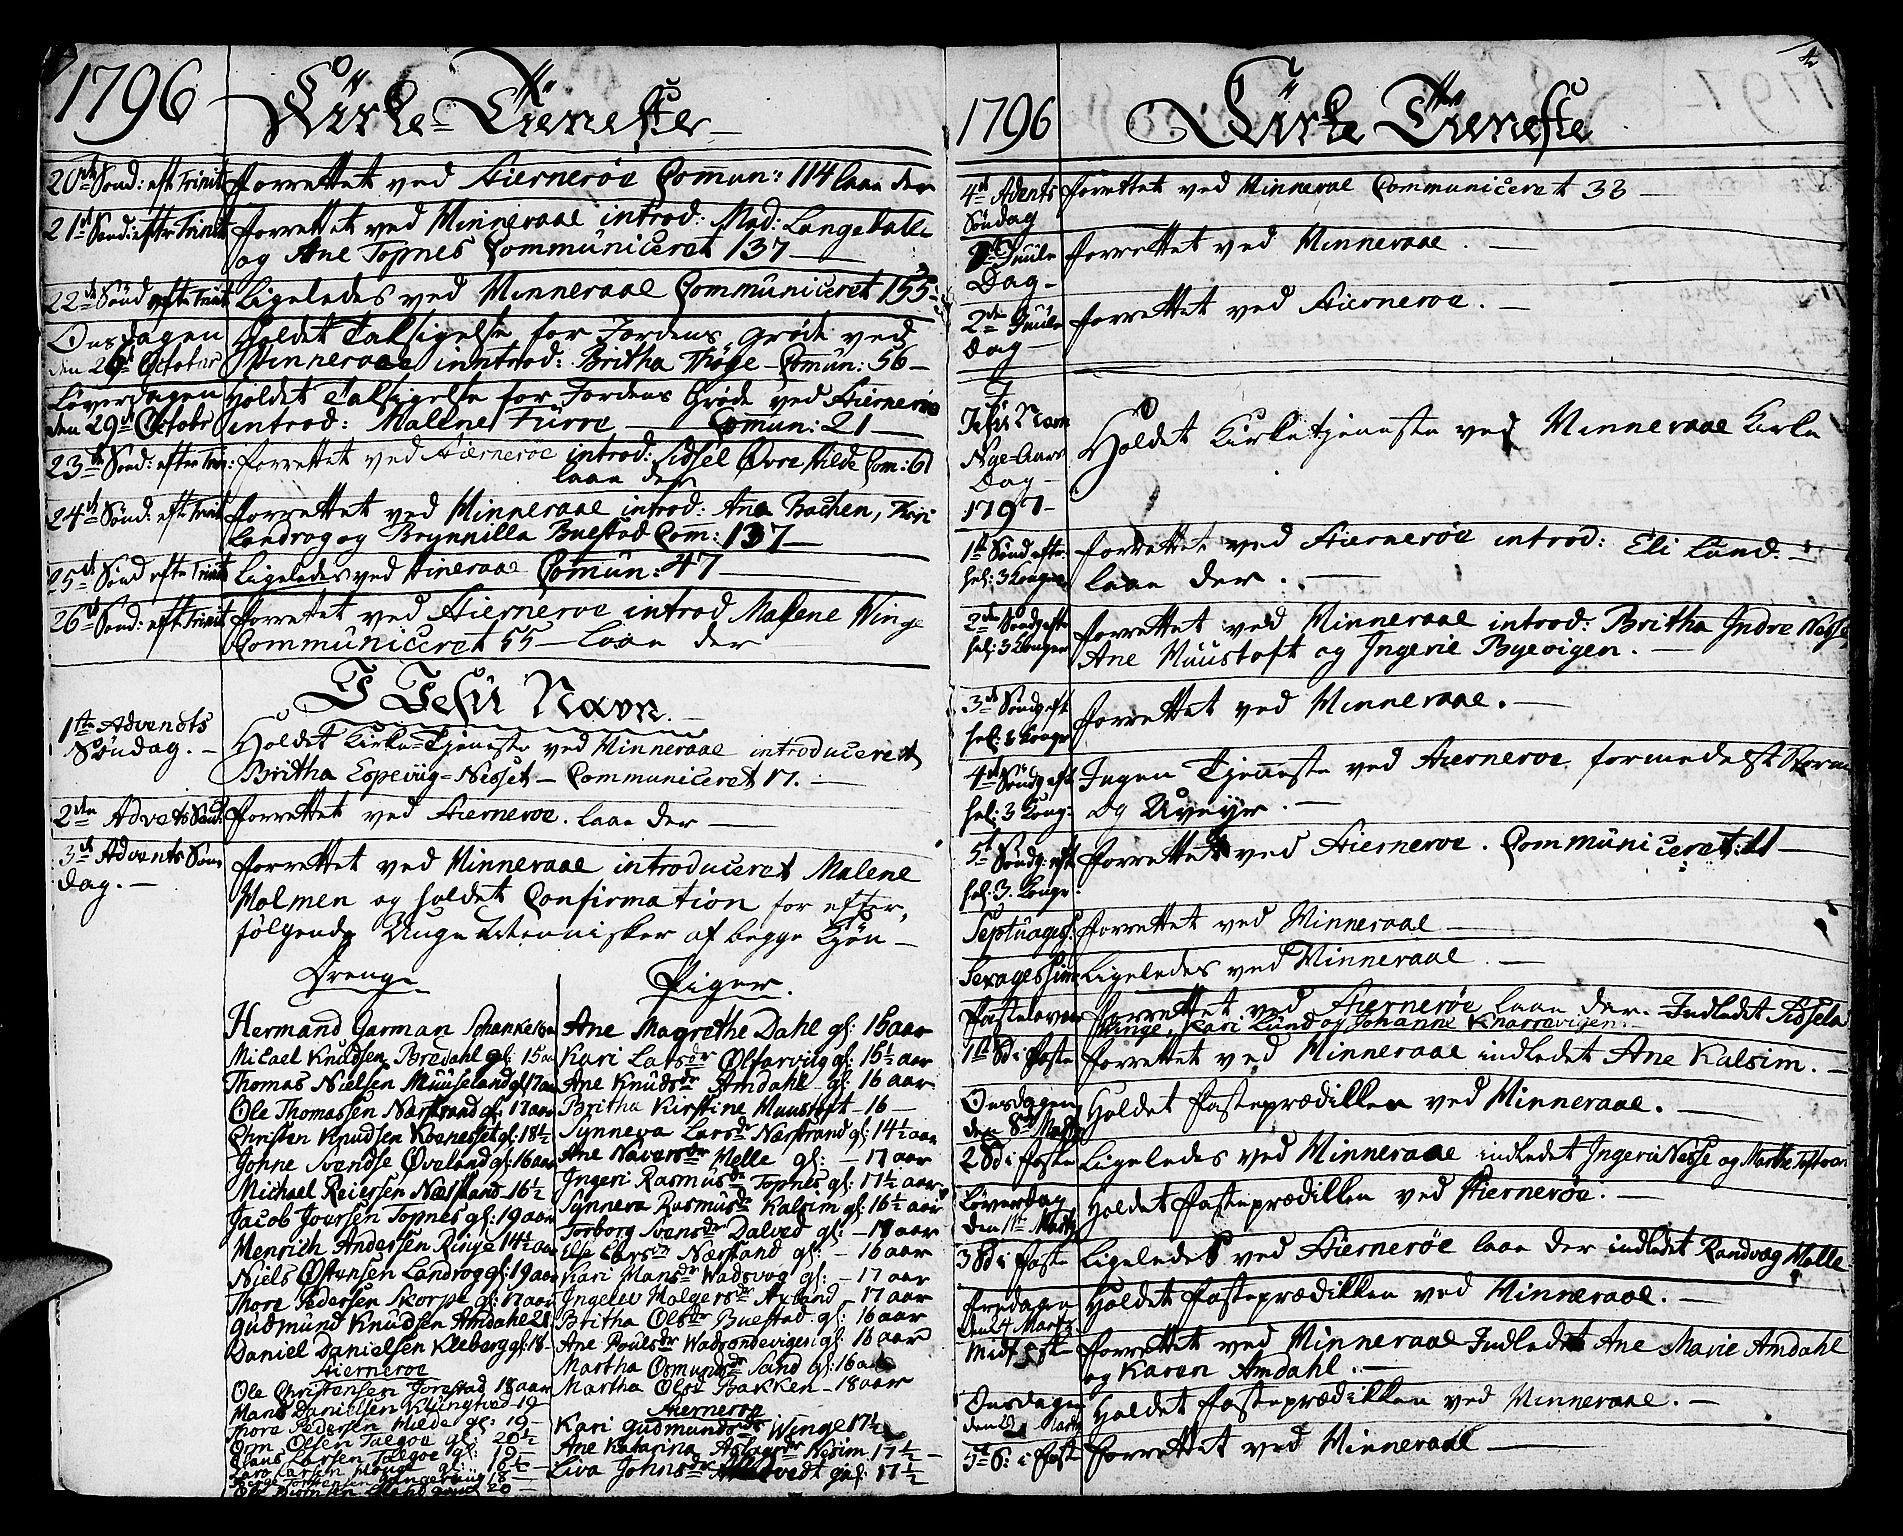 1796 Kirke-Tieneste
20de Sønd: eft Trinit forrettet ved Hiernerøe Comun: 114 laae der
21st Sønd: efter Trinit forrettet ved Hinneraae introd: Mad: Langedalli
og Ane Topnes Communiceret 137
22de Sønd efte Trinit Ligeledes ved Hinneraae Communiceret 155
Onsdagen Holdet Taksigelse for Jordens Grøde ved
den 26t October Hinneraae inntrod: Britha Høge Comun: 56
Løverdagen Holdet Taksigelse for Jordens Grøde ved Hiernerøe
den 29d Octobr introd: Malene Furre Comun: 21
23de Sønd: efter Trin: forrettet ved Hiernerøe introd: Sidsel Øvre Hilde Com: 61
laae der
24d Sønd: eft Trinit forrettet ved Hinneraae introd: Ana Bachen, Kari
Landrog og Brynnilla Buestad Com: 137
25d Sønd efte Trinit Ligeledes ved Hineraae Comun: 47
26d Sønd: eft Trinit forrettet ved Hiernerøe introd Malene Winge
Communiceret 55 laae der
I Jesu Navn
1ste Advendts Søndag. Holdet Kirke-Tjeneste ved Hinneraae introduceret
Britha Espevig-Nesset Communiceret 17.
2den Advets Sønd: forrettet ved Hiernerøe. laae der
3d Advents Søndag. forrettet ved Hinneraae introduceret Malene
Holmen og holdet Confirmation for efter,
følgende Unge Mennisker af begge Kjøn
Drenge
Hermand Garman
Micael Knudsen Bredahl gl: 15 aar
Thomas Nielsen Muuseland gl 17 aar
Ole Thomassen Nærstrand gl: 17 aar
Christen Knudsen gl: 18½
Johne Svendse Øveland gl: 16 aar
Michael Reiersen Nærstrand 16½
Jacob Joersen Topnes gl: 19 aar
Henrich Andersen Ringe 14½ aar
Niels Østensen Landrog gl: 19 aar
Thore Pedersen Skorpe gl: 17 aar
Gudmund Knudsen Amdahl 21
Daniel Danielsen Kleberg gl: 18
Hiernerøe
Ole Christensen Jorestad 18 aar
Mans Danielsen Klungtved 19
Thore Pedersen Helde gl: 19
Olsen Talgøe gl: 20½
Claus Larsen Talgøe gl: 19
Lars Larsen gl: 18½
Piger.
Ane Magrethe Dahl gl: 15 aar
Kari Larsdr Østarviig gl: 15½ aar
Ane Knudsdr Amdahl gl: 16 aar
Britha Kirstine Muustoft 16
Synneva Larsdr Nærstrand gl: 14½ aar
Ane Havorsdr Helle gl: 17 aar
Ingeri Rasmusdr Topnes gl: 17½ aar
Synneva Rasmusdr Kalsim gl: 16½ aar
Torborg Svensdr Dalved gl: 17 aar
Else Larsdr Nærstrand gl: 16 aar
Kari Mansdr Wadsvog gl: 17 aar
Ingelev Holgersdr Axland 17 aar
Britha Olsdr Buestad gl: 16 aar
Ane Poulsdr gl: 16 aar
Martha Osmundsdr Sand gl: 16 aar
Martha Olsd Bakken 18 aar
Hiernerøe
Kari Gudmundsdr Winge 17½
Ane Katarina Aslagsdr Nesim 17½
Liva Johnsdr gl: 17½
1796 Kirke Tieneste
4de Adents Søndag forrettet ved Hinneraae Communiceret 33
1ste Juule Dag forrettet ved Hinneraae.
2den Juule Dag forrettet ved Hiernerøe.
I Jesu Navn
Nye-Aars Dag 1797 Holdet Kirketjeneste ved Hinneraae Kirke
1ste Sønd efte hel: 3 Konger forrettet ved Hiernerøe introd: Eli Lund.
laae der.
2den Søndg efte hel: 3 Konger forrettet ved Hinneraae introd: Britha Indre Nesse,
Ane Muustoft og Ingerie Byevigen.
3de Søndg eft hel: 3 Konger forrettet ved Hinneraae.
4d Søndg eft hel: 3 Kong: Ingen Tjeneste ved Hiernerøe formedelst Storm
og Uveyr.
5t Søndg: eft hel: 3. Konge: forrettet ved Hiernerøe. Communiceret: 11
Septuages. forrettet ved Hinneraae
Sexagessima Ligeledes ved Hinneraae.
Fastelavn forrettet ved Hiernerøe laae der. Indledet Sidsela
Winge, Kari Lund og Johanne Knarravigen.
1ste Sd i faste forrettet ved Hinneraae indledet Ane Kalsim.
Onsdagen den 8de Martz Holdet fasteprædikken ved Hinneraae.
2 Sd i faste Ligeledes ved Hinneraae indledet Ingeri Nesse og Marthe
Løverdag den 11te Martz Holdet fasteprædikken ved Hiernerøe.
3 Sd i faste Ligeledes ved Hiernerøe laae der indledet Randvag Helle
Fredagen den 24 Martz Holdet fasteprædikken ved Hinneraae.
Midfast forrettet ved Hinneraae Indledet Ane Marie Amdahl
og Karen Amdahl.
Onsdagen den 29 Martz Holdet fasteprædikken ved Hinneraae.
5t S: i faste forrettet ved Hinneraae